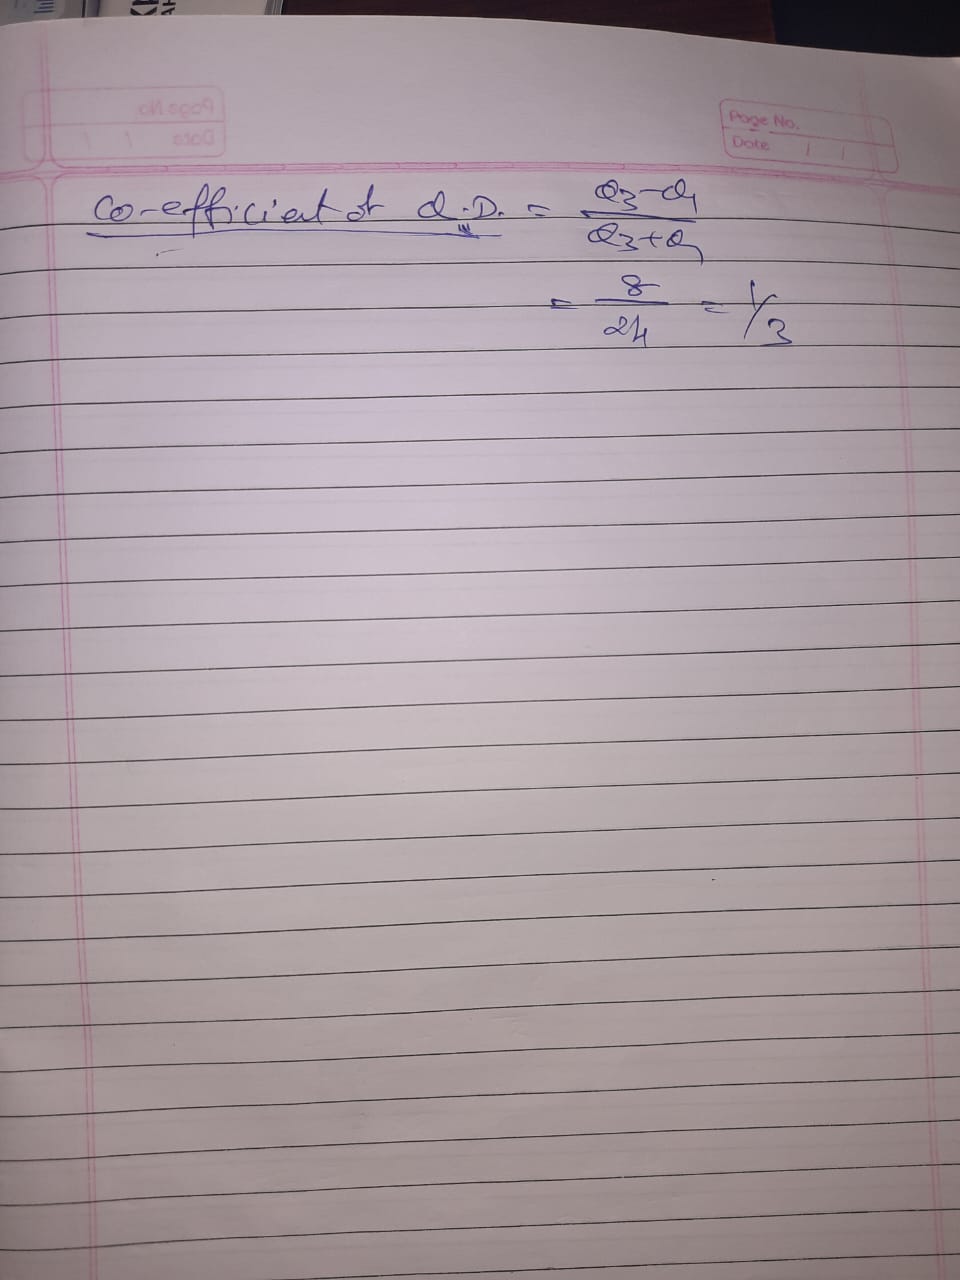 Page No.
Date / /
Co-efficient of Q.D. = Q3-Q1 / Q3+Q1
= 8 / 24 = 1/3